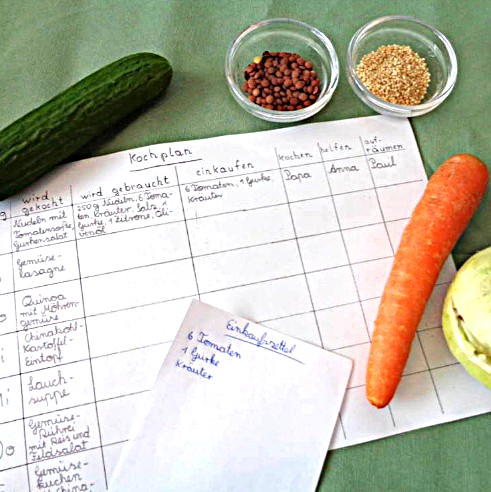 Kochplan
wird gekocht
wird gebraucht
einkaufen
kochen
helfen
auf-
räumen
Nudeln mit
Tomatensoße,
Gurkensalat
250g Nudeln, 6 Toma-
ten, Kräuter, Salz,
Gurke, 1 Zitrone, Oli-
venöl
6 Tomaten, 1 Gurke,
Kräuter
Papa
Anna
Paul
Gemüse-
lasagne
Quinoa
mit Möhren-
gemüse
Chinakohl-
Kartoffel-
Eintopf
Lauch-
suppe
Gemüse-
Rührei
mit Reis und
Feldsalat
Gemüse-
kuchen
Einkaufszettel
6 Tomaten
1 Gurke
Kräuter